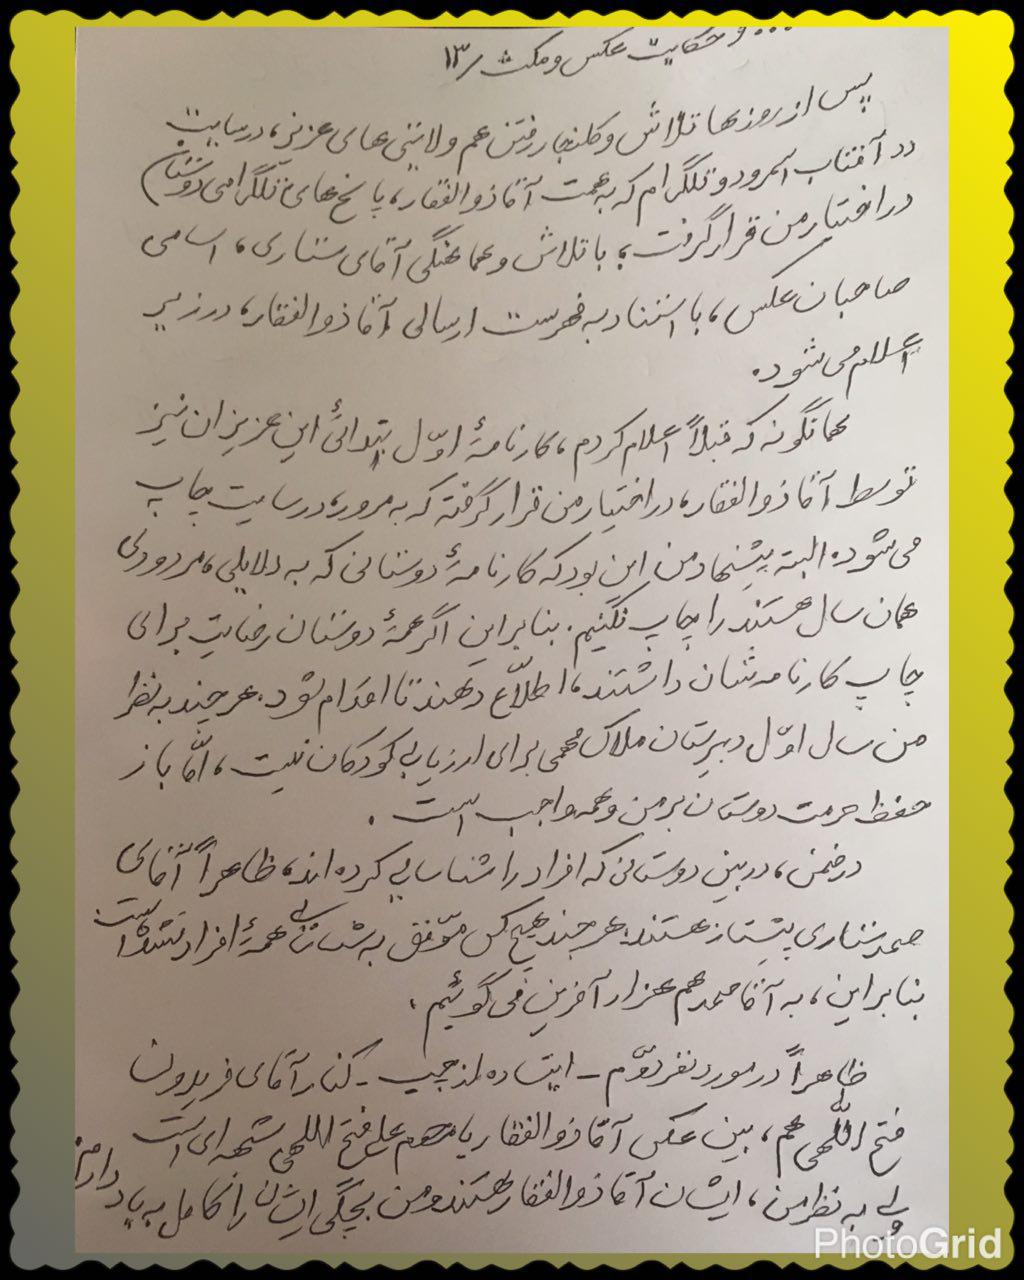 ... و حکایت عکس و مکث /۱۳
پس از روزها تلاش و کلنجار رفتن هم ولایتی های عزیز، در سایت
دد آفتاب اسمرود و تلگرام که به همت آقا ذوالفقار، پاسخ های تلگرامی دوستان
در اختیار من قرار گرفت؛ با تلاش و هماهنگی آقای ستاری، اسامی
صاحبان عکس، با استناد به فهرست ارسالی آقا ذوالفقار، در زیر
اعلام می شود.
همانگونه که قبلاً اعلام کردم، کارنامهٔ اوّل ابتدائی این عزیزان نیز
توسط آقا ذوالفقار، در اختیار من قرار گرفته که به مرور، در سایت چاپ
می شود. البته پیشنهاد من این بود که کارنامهٔ دوستانی که به دلایلی، مردودی
همان سال هستند را چاپ نکنیم. بنابراین اگر همهٔ دوستان رضایت برای
چاپ کارنامه شان داشتند، اطلاّع دهند تا اقدام شود. هر چند به نظر
من سال اوّل دبیرستان ملاک مهمی برای ارزیابی کودکان نیست، امّا باز
حفظ حرمت دوستان بر من و همه واجب است.
در ضمن، در بین دوستانی که افراد را شناسایی کرده اند، ظاهراً آقای
صمد ستاری پیشتاز هستند؛ هر چند هیچ کس موّفق به شناسایی همهٔ افراد نشده است
بنابراین، به آقا صمد هم هزار آفرین می گوئیم.
ظاهراً در مورد نفر دوّم - ایستاده از چپ - کنار آقای فریدون
فتح اللّهی هم، بین عکس آقا ذوالفقار یا مرحوم علی فتح اللهی شبهه ای است
ولی به نظر من، ایشان آقا ذوالفقار هستند و من بچگی ایشان را کامل به یاد دارم
PhotoGrid